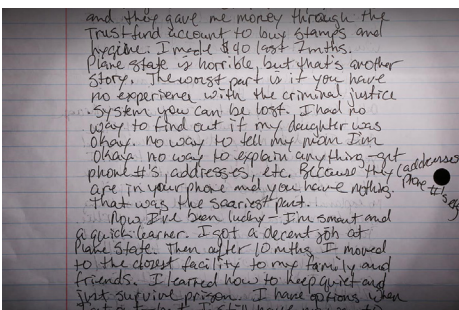 and they gave me money through the
Trustfund account to buy stamps and
hygiene. I made $40 last 7mths.
Plane State is horrible, but that's another
story. The worst part is if you have
no experience with the criminal justice
system you can be lost. I had no
way to find out if my daughter was
okay. no way to tell my mom I'm
okay. no way to explain anything - get
phone #'s, addresses, etc. Because they (addresses
are in your phone and you have nothing. phone #'s
that was the scariest part.
Now I've been lucky - I'm smart and
a quick learner. I got a decent job at
Plane State. Then after 10 mths I moved
to the closest facility to my family and
friends. I learned how to keep quiet and
just survive prison. I have options when